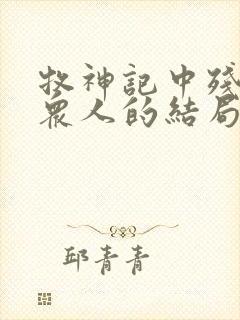 牧神記中殘
眾人的結局
邱青青